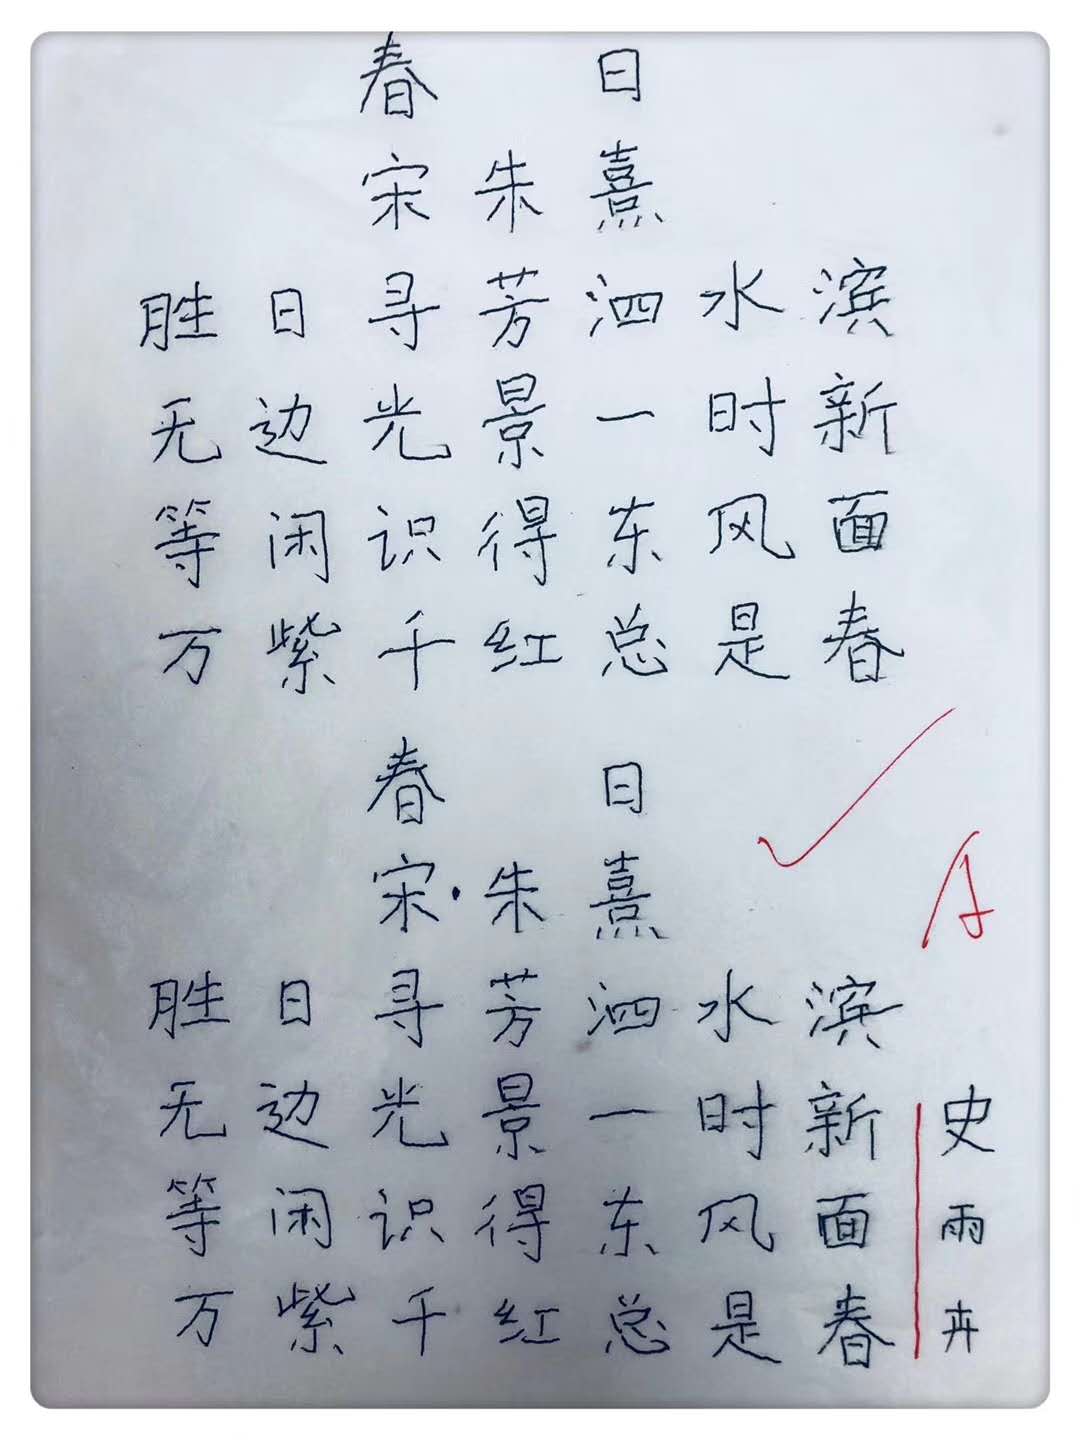 春日
宋朱熹
胜日寻芳泗水滨
无边光景一时新
等闲识得东风面
万紫千红总是春
春日
宋·朱熹
胜日寻芳泗水滨
无边光景一时新
等闲识得东风面
万紫千红总是春
A
史雨卉